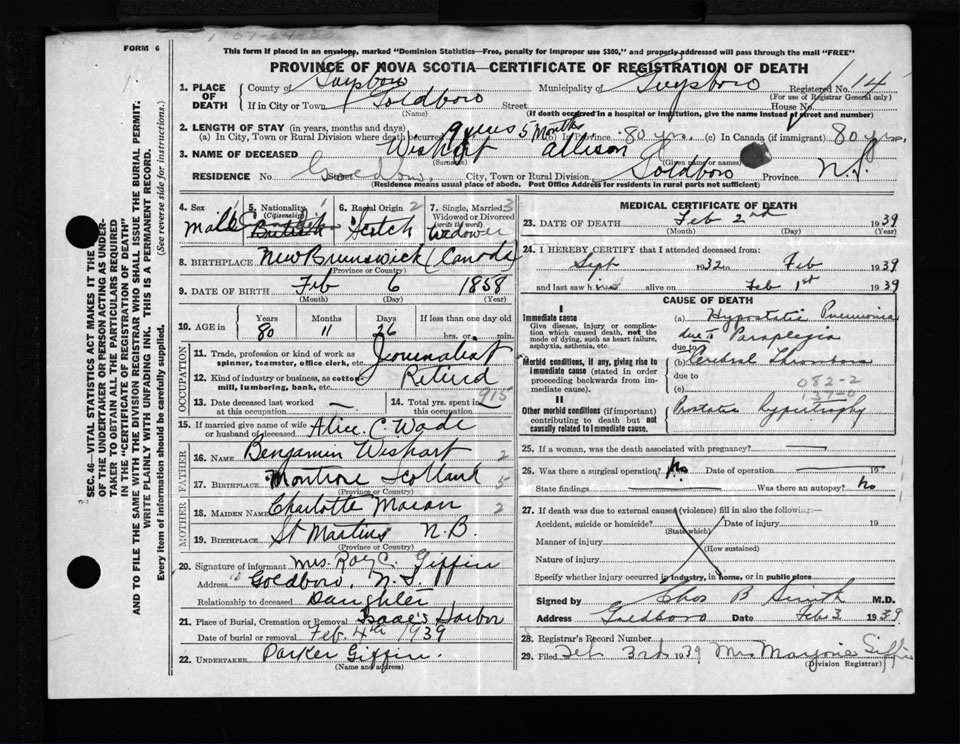 FORM 6
This form if placed in an envelope, marked "Dominion Statistics—Free, penalty for improper use $300," and properly addressed will pass through the mail "FREE"
PROVINCE OF NOVA SCOTIA—CERTIFICATE OF REGISTRATION OF DEATH
1. PLACE OF DEATH
County of Guysboro Municipality of Guysboro Registered No. 14
(For use of Registrar General only)
If in City or Town Goldboro Street House No.
(Name) (If death occurred in a hospital or institution, give the name instead of street and number)
2. LENGTH OF STAY (in years, months and days)
(a) In City, Town or Rural Division where death occurred 9 years 5 Months (b) In Province 80 yrs. (c) In Canada (if immigrant) 80 yrs.
3. NAME OF DECEASED Wishart Allison
(Surname) (Given name or names)
RESIDENCE No. Goldboro. City, Town or Rural Division Goldboro Province N.S.
(Residence means usual place of abode. Post Office Address for residents in rural parts not sufficient)
4. Sex Male
5. Nationality (Citizenship) Canadian British
6. Racial Origin 2 Scotch
7. Single, Married, Widowed or Divorced (write the word) 3 Widower
8. BIRTHPLACE New Brunswick (Canada)
(Province or Country)
9. DATE OF BIRTH Feb 6 1858
(Month) (Day) (Year)
10. AGE in Years Months Days If less than one day
80 11 26 hrs. or min.
OCCUPATION
11. Trade, profession or kind of work as spinner, teamster, office clerk, etc. Journalist
12. Kind of industry or business, as cotton mill, lumbering, bank, etc. Retired
915
13. Date deceased last worked at this occupation — 14. Total yrs. spent in this occupation
15. If married give name of wife or husband of deceased Alice C. Wade
FATHER
16. NAME Benjamin Wishart 2
17. BIRTHPLACE Montrose Scotland 5
(Province or Country)
MOTHER
18. MAIDEN NAME Charlotte Moran 2
19. BIRTHPLACE St Martins N.B.
(Province or Country)
20. Signature of informant Mrs. Roy C. Giffin
Address Goldboro, N.S.
Relationship to deceased Daughter
21. Place of Burial, Cremation or Removal Isaac's Harbor
Date of burial or removal Feb. 4th 1939
22. UNDERTAKER Parker Giffin.
(Name and address)
MEDICAL CERTIFICATE OF DEATH
23. DATE OF DEATH Feb 2nd 1939
(Month) (Day) (Year)
24. I HEREBY CERTIFY that I attended deceased from:
Sept 1932 to Feb 1939
and last saw him alive on Feb 1st 1939
CAUSE OF DEATH
I
Immediate cause
Give disease, injury or complication which caused death, not the mode of dying, such as heart failure, asphyxia, asthenia, etc.
(a) Hypostatic Pneumonia
due to Paraplegia
due to
Morbid conditions, if any, giving rise to immediate cause (stated in order proceeding backwards from immediate cause).
(b) Cerebral Thrombosis
due to 082-2
(c) 137-0
II
Other morbid conditions (if important) contributing to death but not causally related to immediate cause.
Prostatic hypertrophy
25. If a woman, was the death associated with pregnancy?
26. Was there a surgical operation? No Date of operation 19
State findings Was there an autopsy? No
27. If death was due to external causes (violence) fill in also the following:—
Accident, suicide or homicide? Date of injury 19
(State which)
Manner of injury
(How sustained)
Nature of injury
Specify whether injury occurred in industry, in home, or in public place
Signed by Chos B Smith M.D.
Address Goldboro Date Feb 3 1939
28. Registrar's Record Number
29. Filed Feb 3rd 1939 Mrs Marjorie Giffin
(Division Registrar)
SEC. 46—VITAL STATISTICS ACT MAKES IT THE
OF THE UNDERTAKER OR PERSON ACTING AS UNDER-
TAKER TO OBTAIN ALL THE PARTICULARS REQUIRED
IN THE "CERTIFICATE OF REGISTRATION OF DEATH"
AND TO FILE THE SAME WITH THE DIVISION REGISTRAR WHO SHALL ISSUE THE BURIAL PERMIT.
WRITE PLAINLY WITH UNFADING INK. THIS IS A PERMANENT RECORD.
Every item of information should be carefully supplied. (See reverse side for instructions.)